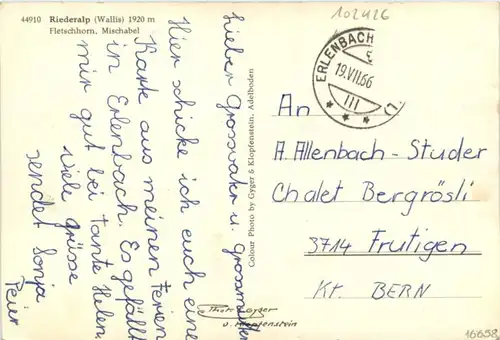 44910 Riederalp (Wallis) 1920 m
Fletschhorn, Mischabel
102426
Lieber Grossvater u. Grossmutter
Hier schicke ich euch eine
Karte aus meinen Ferien
in Erlenbach. Es gefällt
mir gut bei Tante Helen.
viele Grüsse
sendet Sonja
Colour Photo by Gyger & Klopfenstein, Adelboden
Photo Gyger
u. Klopfenstein
ERLENBACH
19.VII.66
III
An
A. Allenbach-Studer
Chalet Bergrösli
3714 Frutigen
Kt. BERN
16658